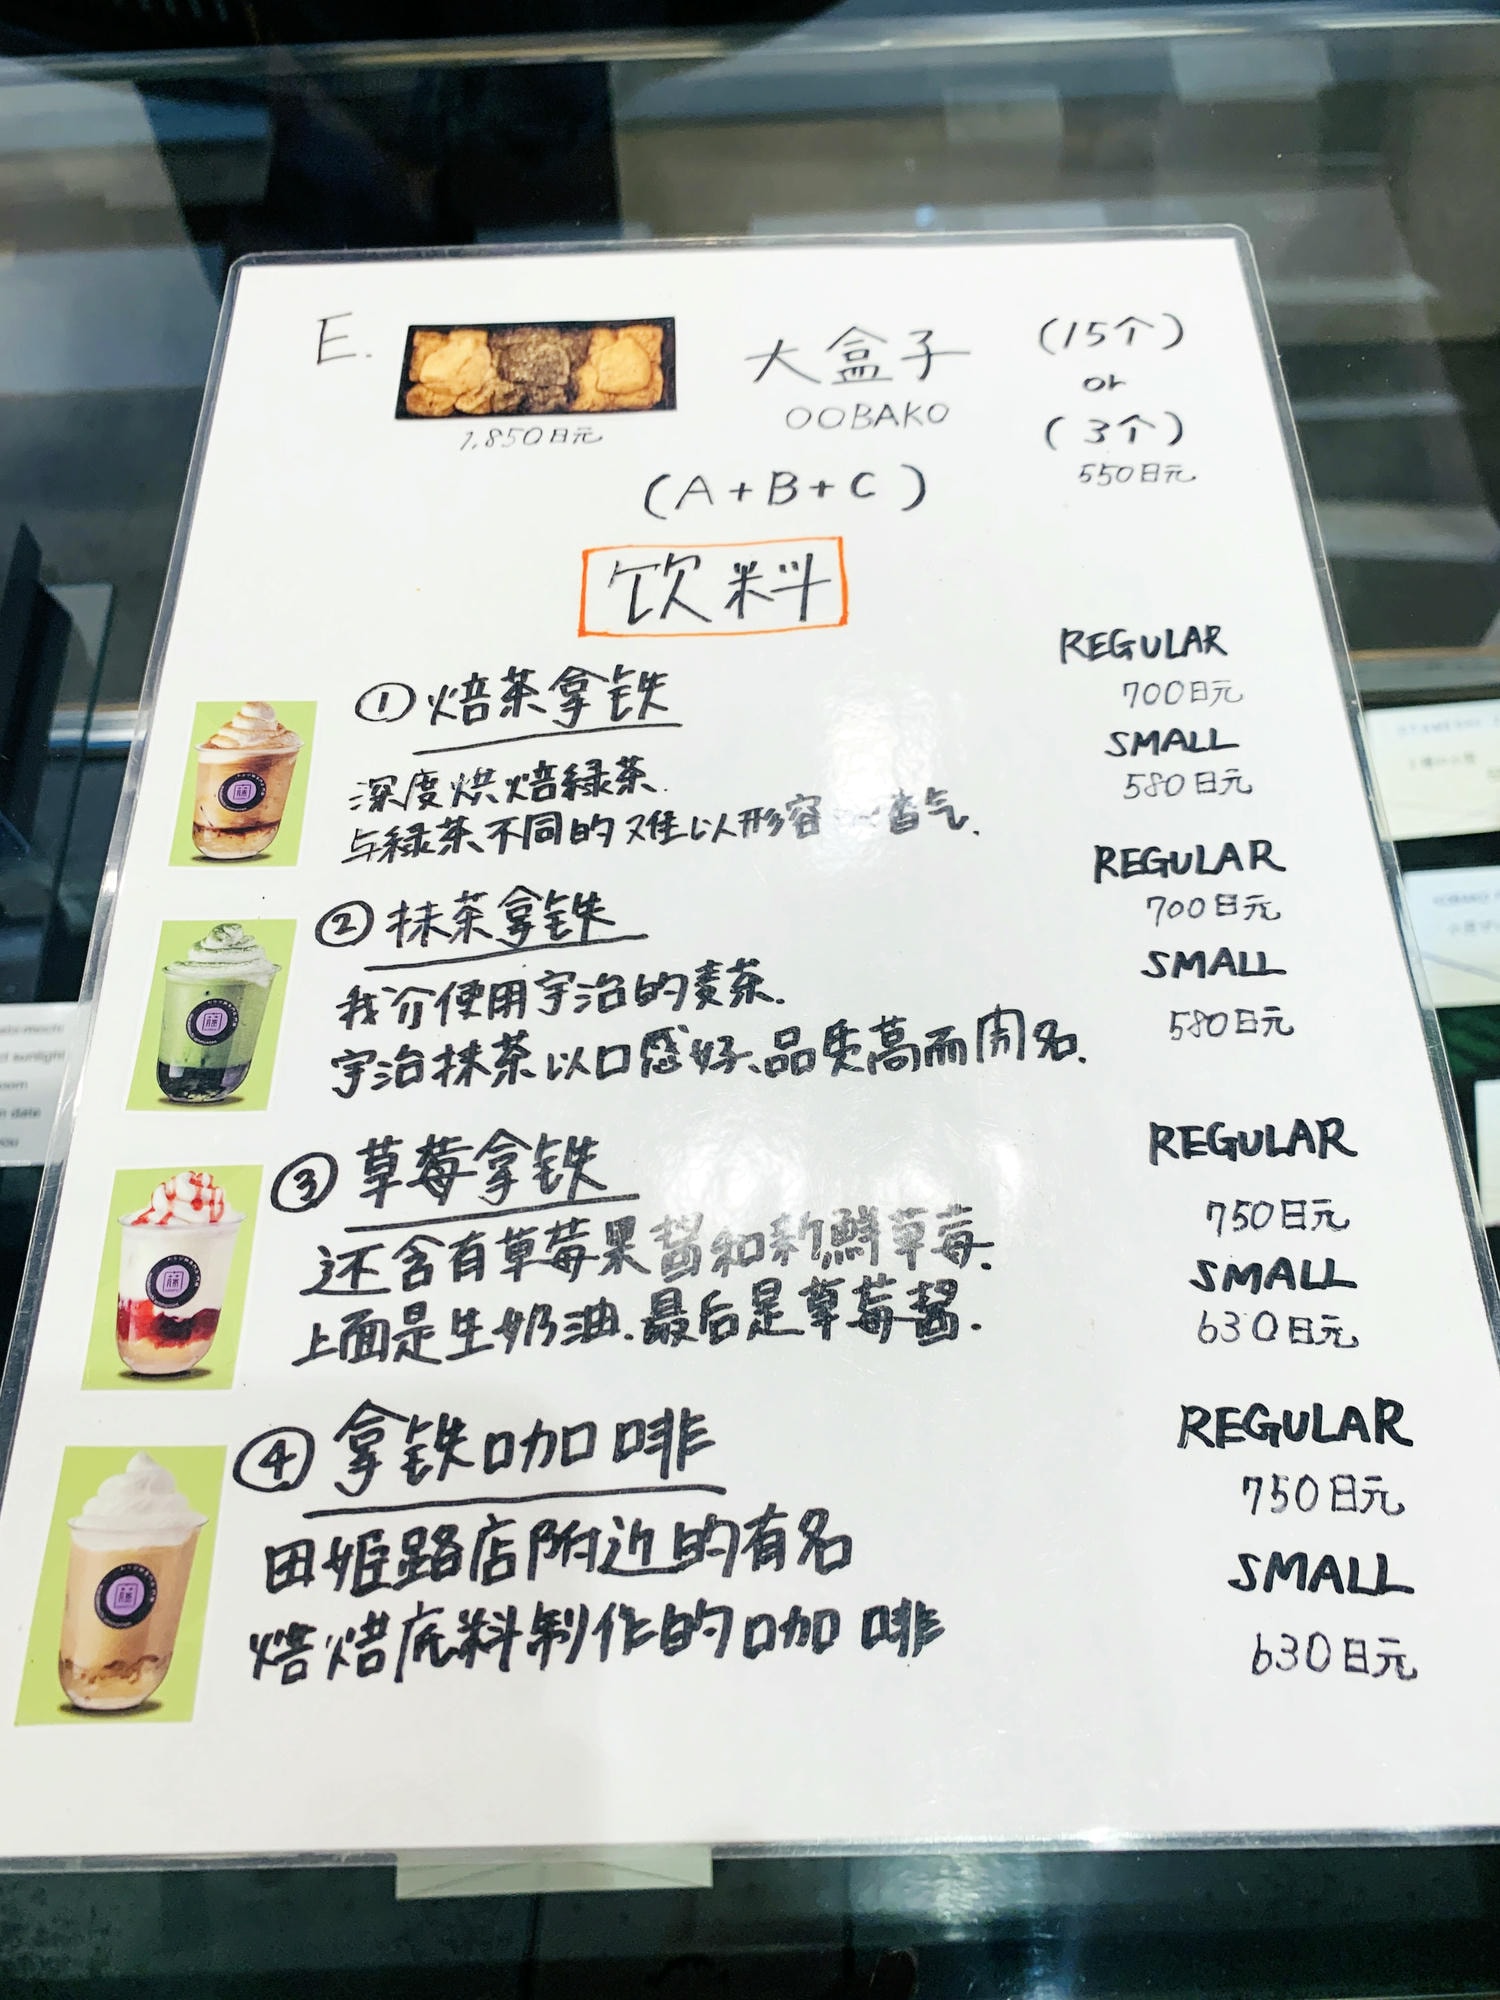 E.
大盒子
(15个)
OOBAKO
or
(3个)
1,850日元
550日元
(A+B+C)
饮料
①焙茶拿铁
REGULAR
700日元
SMALL
580日元
深度烘焙緑茶.
与緑茶不同的难以形容 香气.
②抹茶拿铁
REGULAR
700日元
SMALL
580日元
我介使用宇治的麦茶.
宇治抹茶以口感好、品质高而闻名.
③草莓拿铁
REGULAR
750日元
SMALL
630日元
还含有草莓果酱和新鮮草莓.
上面是生奶油.最后是草莓酱.
④拿铁咖啡
REGULAR
750日元
SMALL
630日元
田姫路店附近的有名
焙焙底料制作的咖啡